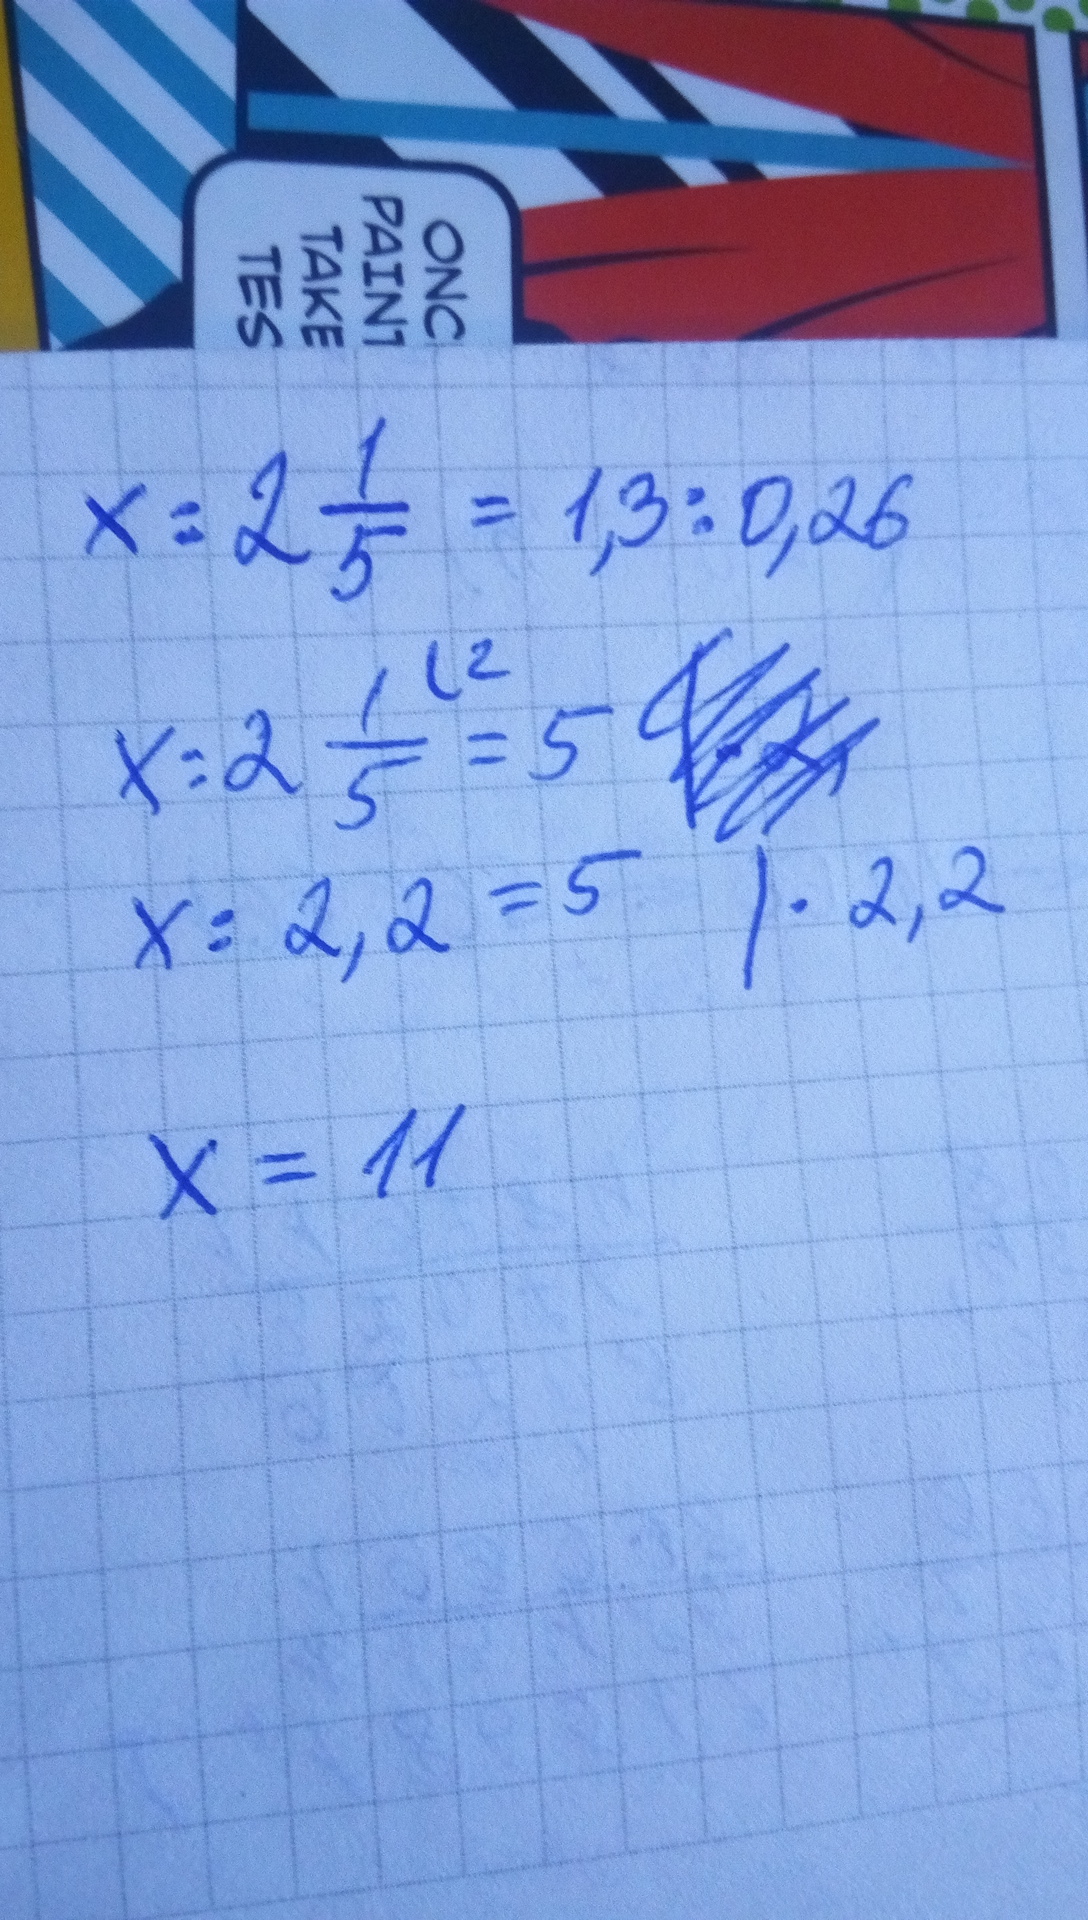 ONC
PAINT
TAKE
TES
x : 2 1/5 = 1,3 : 0,26
x : 2 1/5 (2 = 5
x : 2,2 = 5 | · 2,2
x = 11